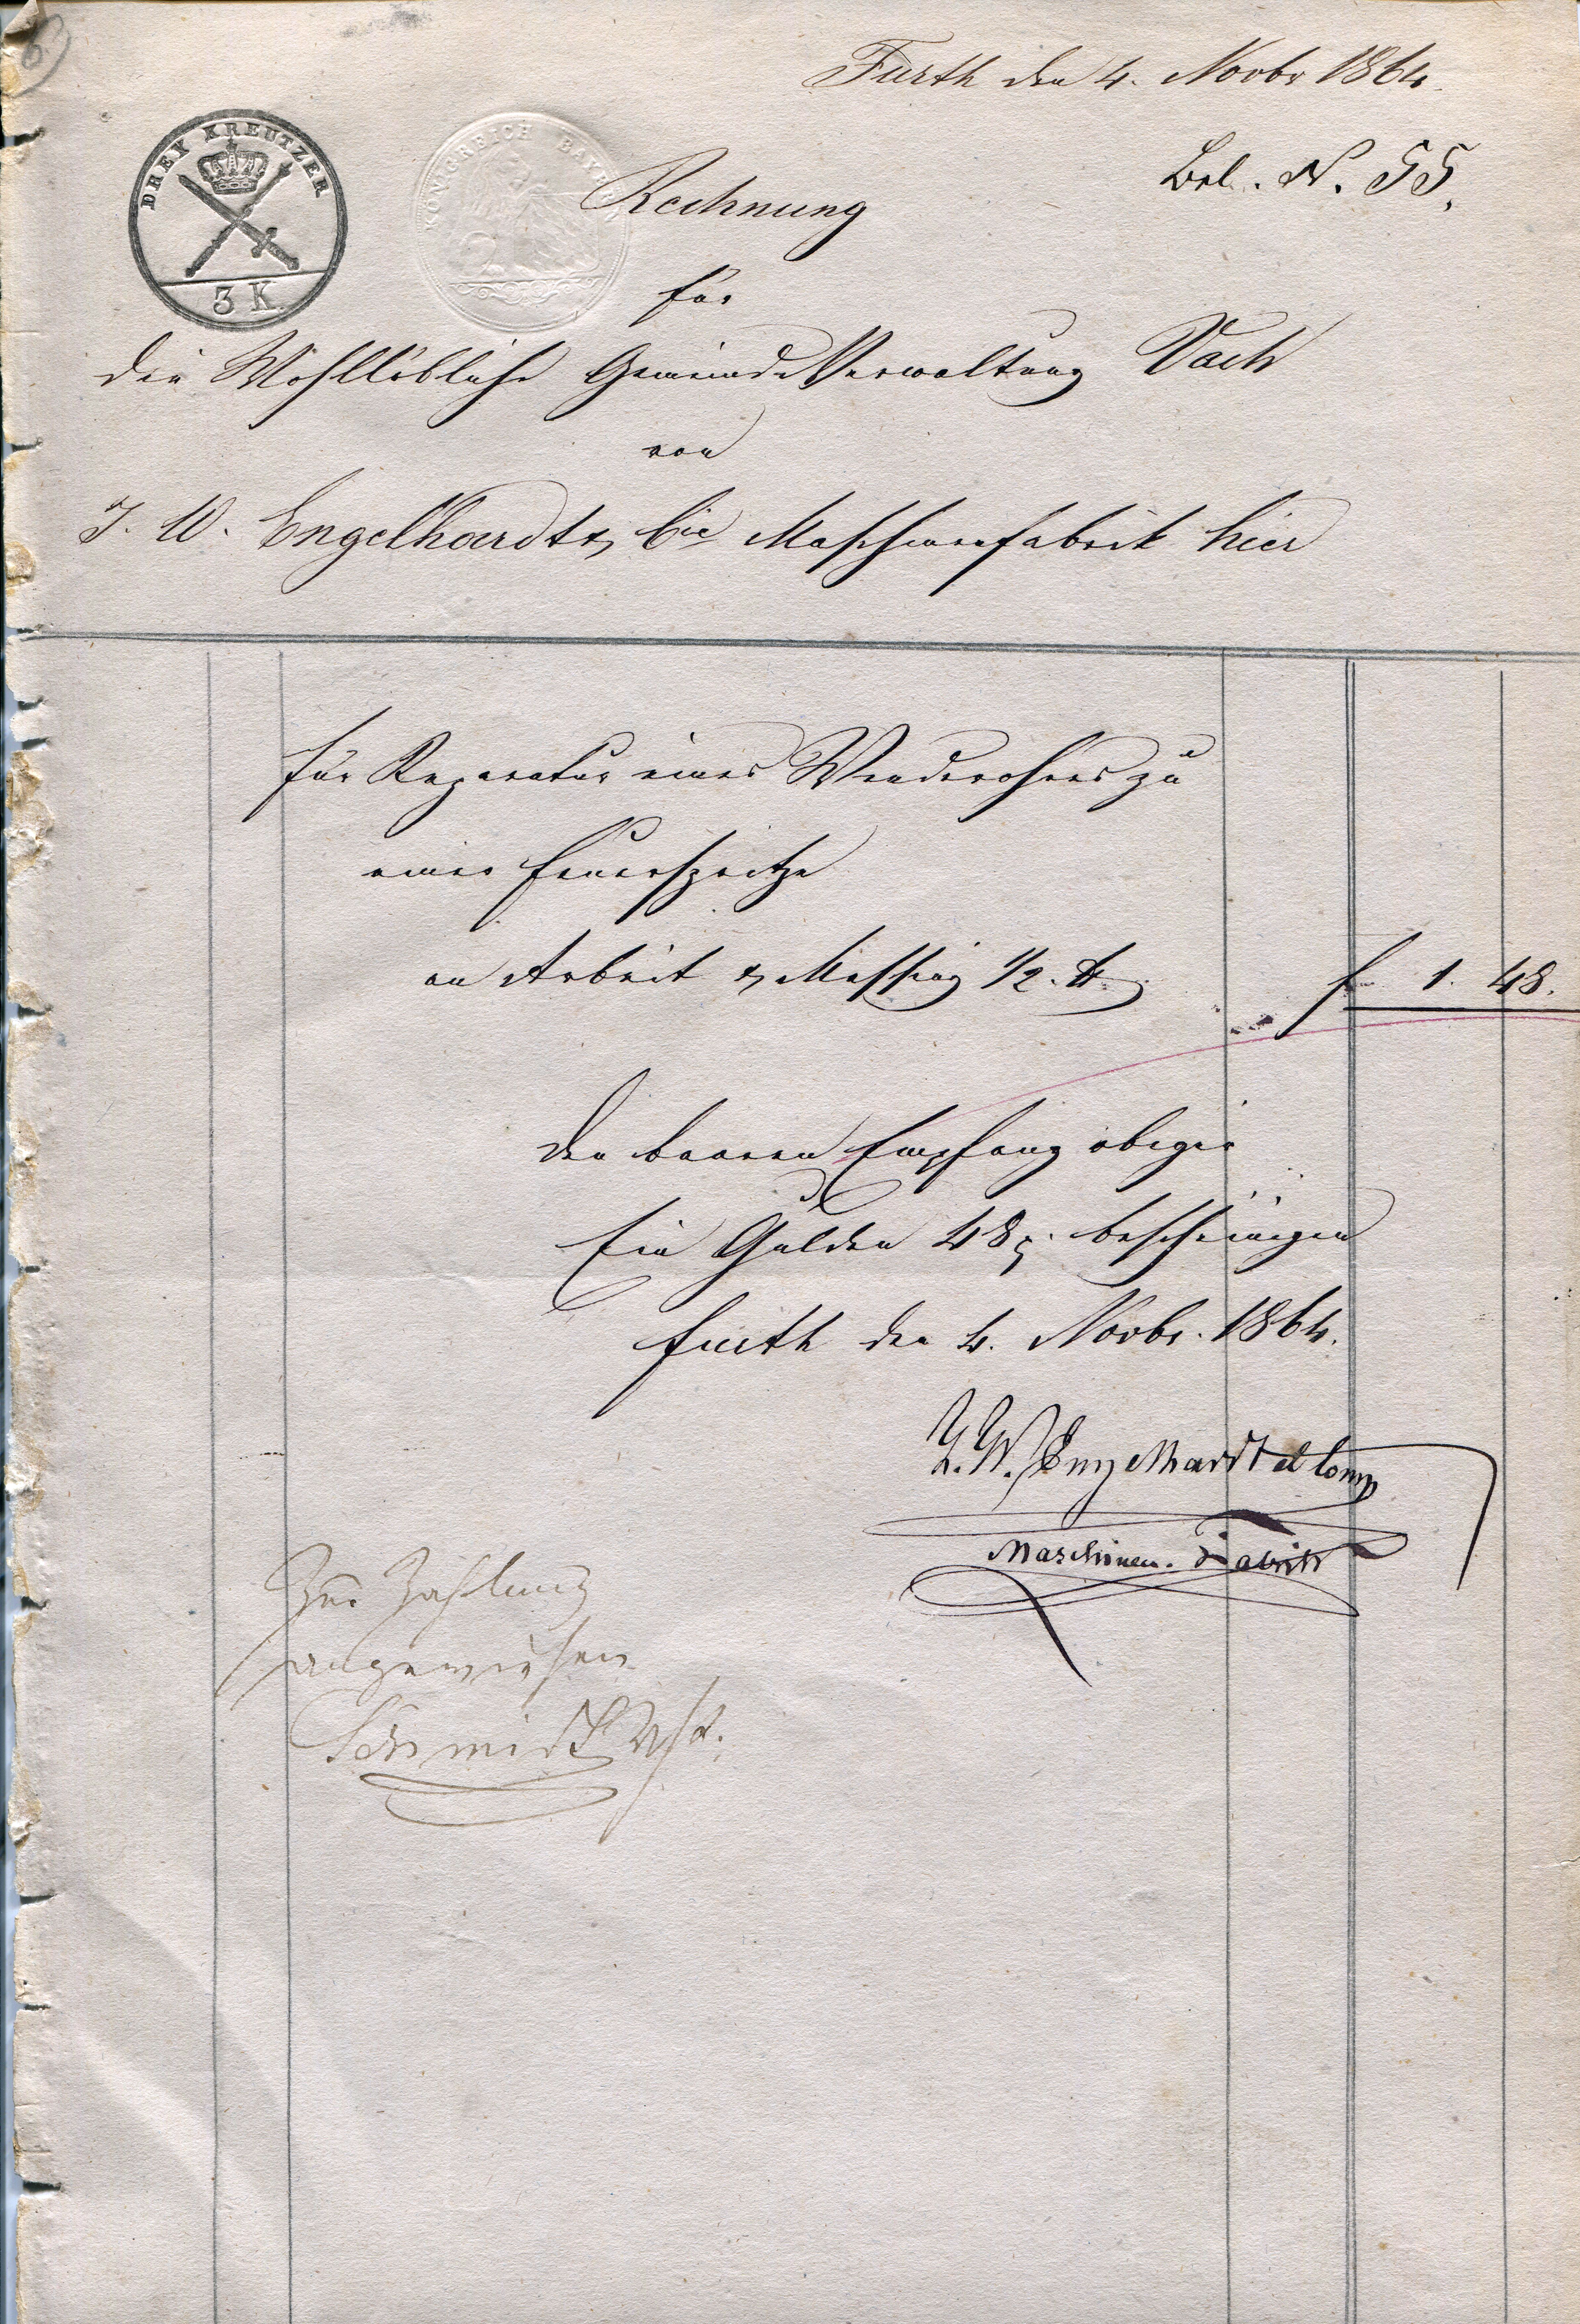 Fürth den 4. Novbr 1864.
Bel. N. 55.
DREY KREUTZER
3 K.
KÖNIGREICH BAYERN
Rechnung
für
die Wohllöbliche Gemeinde Verwaltung Vach
von
J. W. Engelhardt & Cie Maschinenfabrik hier
für Reparatur eines Wenderohres zu
einer Feuerspritze
an Arbeit & Messing 1/2 ℔
f 1. 48.
Den baaren Empfang obiger
Ein Gulden 48 x. bescheinigen
Fürth den 4. Novbr. 1864.
J. W. Engelhardt et Comp
Maschinen-Fabrik
Zur Zahlung
angewiesen
Schmidt Vst.